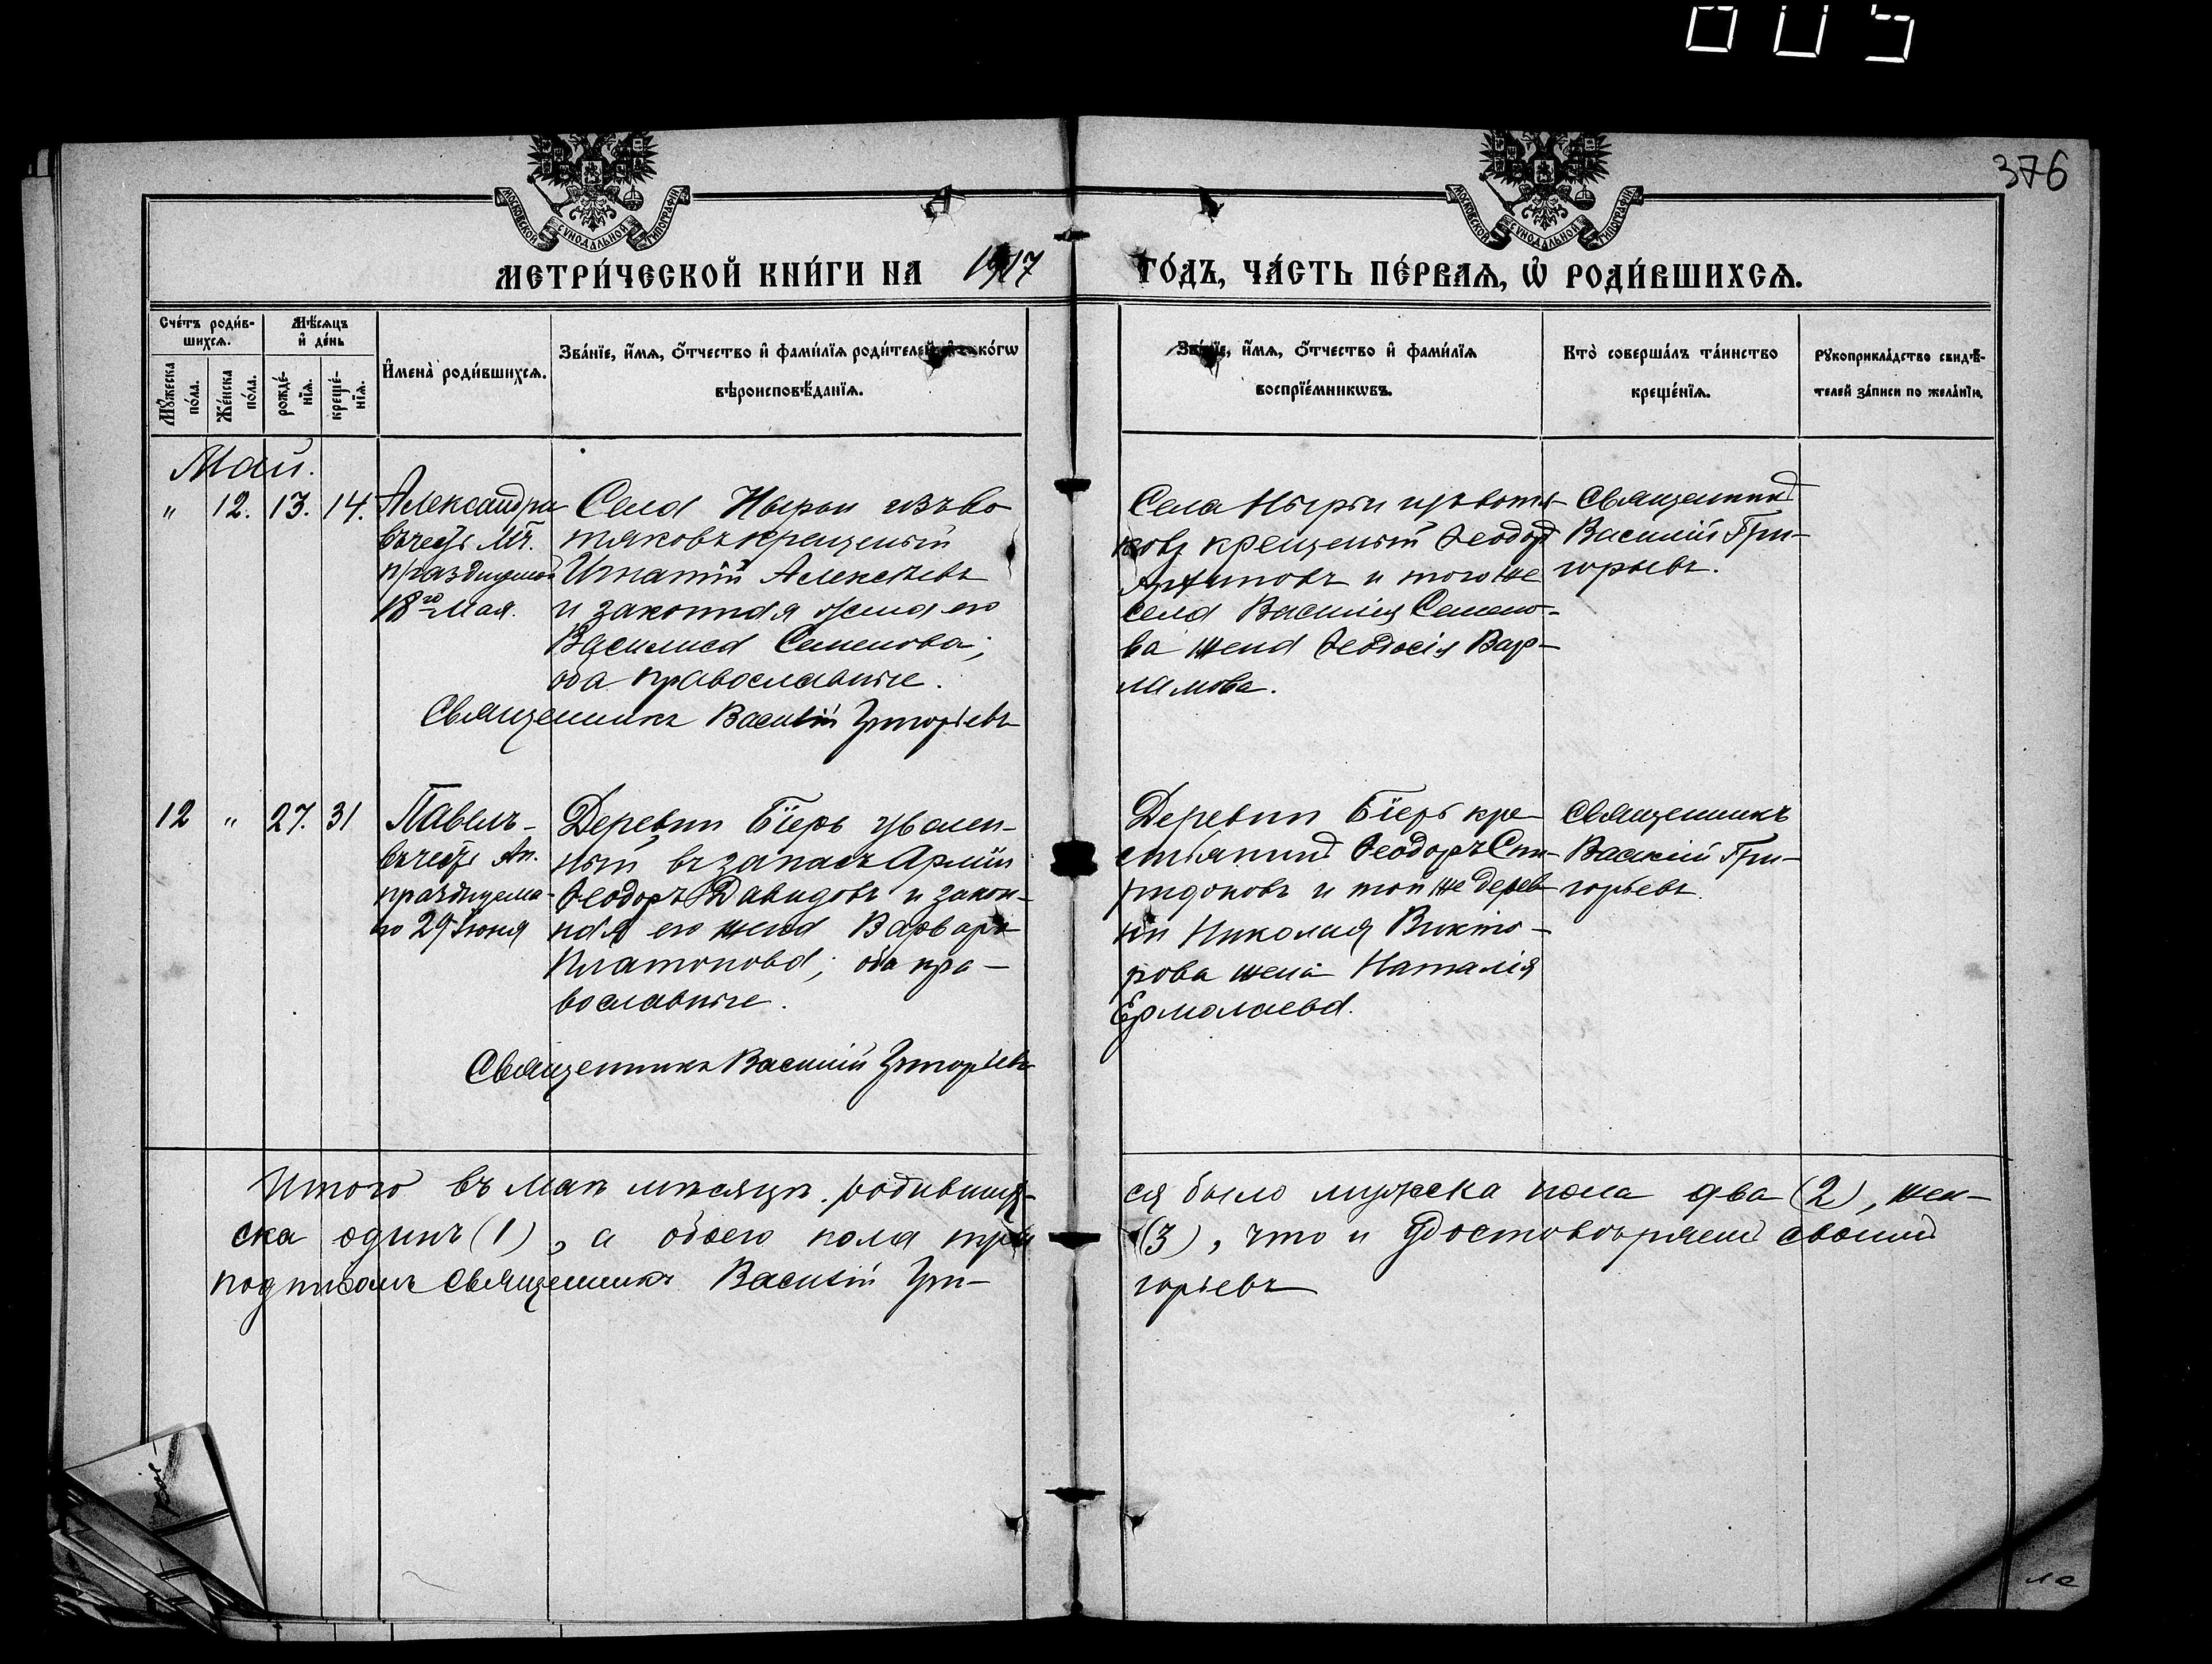 376
МОСКОВСКОЙ СУНОДАЛЬНОЙ ТИПОГРАФІИ
МОСКОВСКОЙ СУНОДАЛЬНОЙ ТИПОГРАФІИ
МЕТРИ́ЧЕСКОЙ КНИ́ГИ НА 1917 ГО́ДЪ, ЧА́СТЬ ПЕ́РВАѦ, Ѡ РОДИ́ВШИХСѦ.
Сче́тъ роди́в-
шихсѧ.
Мѣ́сѧцъ
и҆ де́нь
Мꙋ́жеска по́ла.
Же́нска по́ла.
рожде́-
нїѧ.
креще́-
нїѧ.
И҆мена̀ роди́вшихсѧ.
Зва́нїе, и҆́мѧ, ѻ҆́тчество и҆ фами́лїѧ роди́телей, и҆ како́гѡ
вѣроисповѣ́данїѧ.
Зва́нїе, и҆́мѧ, ѻ҆́тчество и҆ фами́лїѧ
воспрїе́мникѡвъ.
Кто̀ соверша́лъ та́инство
креще́нїѧ.
Рꙋкоприкла́дство свидѣ́-
телей за́писи по жела́нїю.
Май.
" 12. 13. 14.
Александра
въ честь Мч.
празднуемой
18го Мая.
Села Нырьи изъ во
тяковъ крещеный
Игнатій Алексѣевъ
и законная жена его
Василиса Семенова;
оба православные.
Священникъ Василій Григорьевъ
Села Нырьи изъ вотя-
ковъ крещеный Ѳеодоръ
и того же
села Василія Семено-
ва жена Ѳеодосія Вар-
ламова.
Священникъ
Василій Гри-
горьевъ.
12 " 27. 31
Павелъ-
въ честь Ап.
празднуема-
го 29 Іюня
Деревни Бїерь уволен-
ный въ запасъ Арміи
Ѳеодоръ Давидовъ и закон-
ная его жена Варвара
Платонова; оба пра-
вославные.
Священникъ Василій Григорьевъ
Деревни Бїерь кре-
стьянинъ Ѳеодоръ Спи-
ридоновъ и той же дерев-
ни Николая Викто-
рова жена Наталія
Ермолаева.
Священникъ
Василій Гри-
горьевъ.
Итого въ Маѣ мѣсяцѣ родивших-
ся было мужска пола два (2), жен-
ска одинъ (1), а обоего пола три
(3), что и удостовѣряемъ своимъ
подписомъ Священникъ Василій Гри-
горьевъ